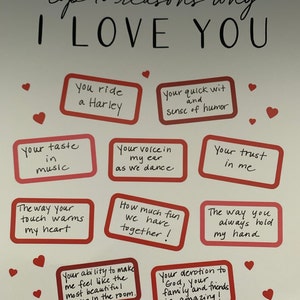 reasons why
I LOVE YOU
you ride
a Harley
Your quick wit
and
sense of humor
Your taste
in
music
Your voice in
my ear
as we dance
Your trust
in me
The way your
touch warms
my heart
How much fun
we have
together!
The way you
always hold
my hand
Your ability to make
me feel like the
most beautiful
in the room.
Your devotion to
God, your
family and friends
is amazing!